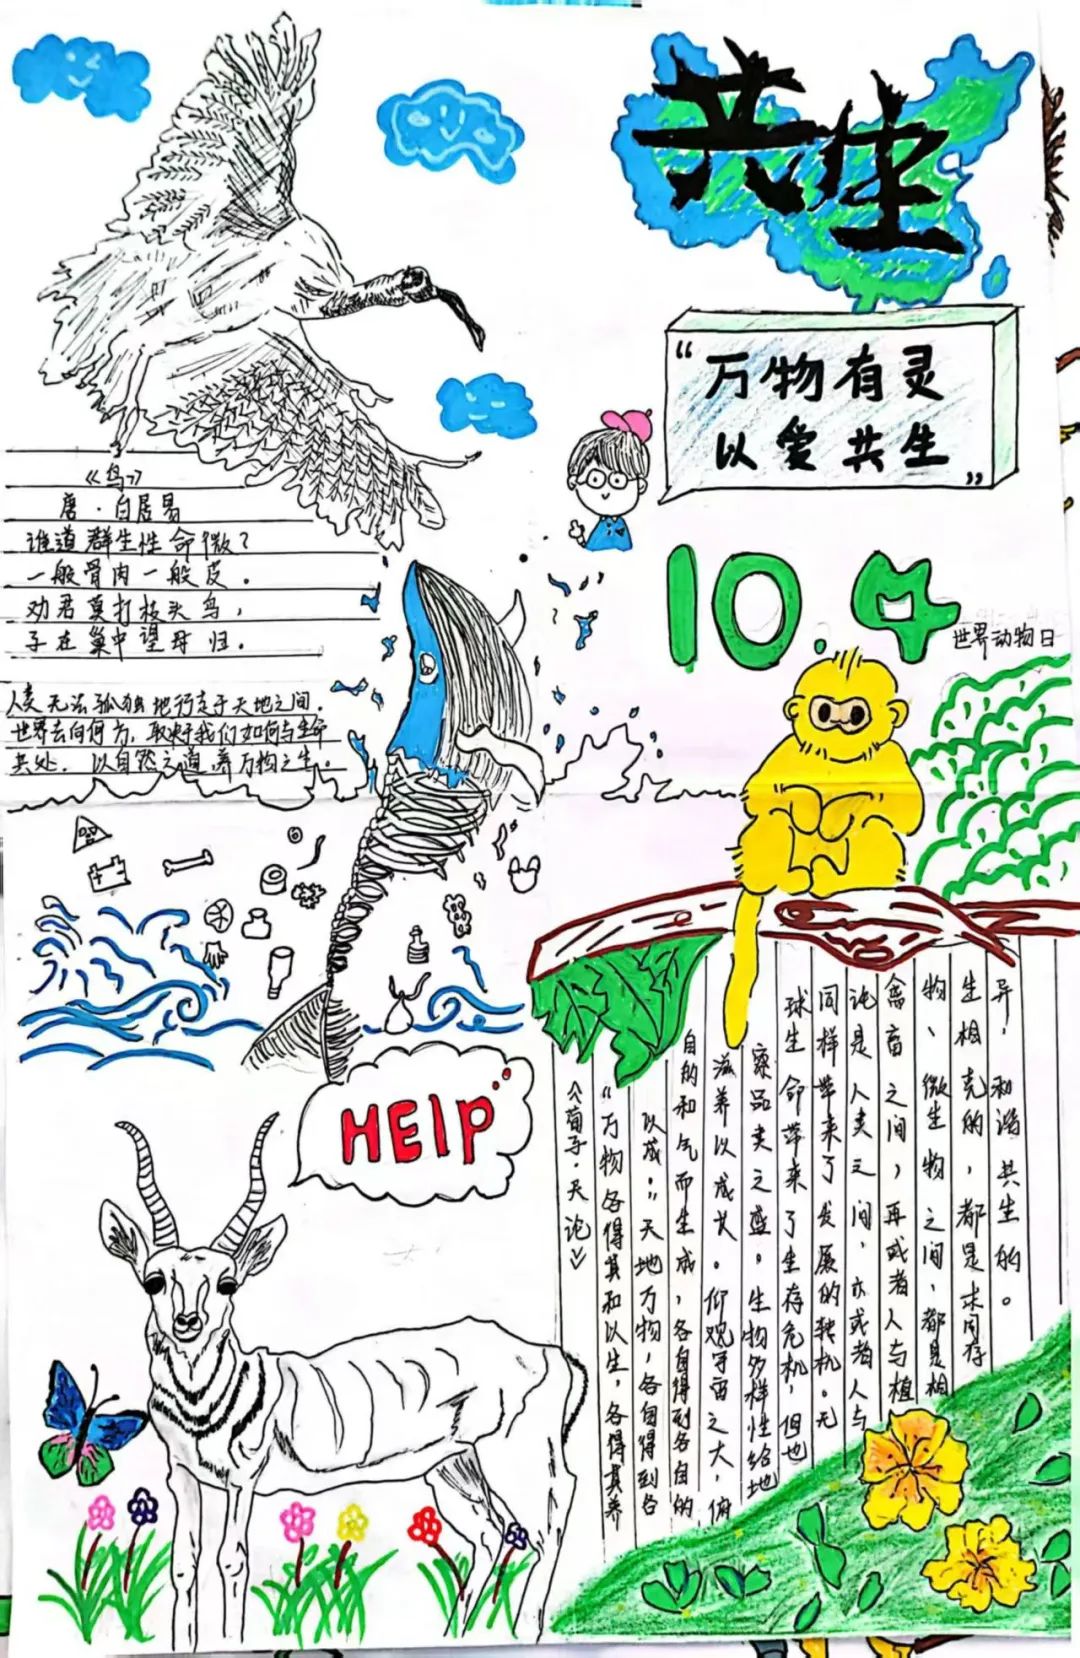 共生
“万物有灵
以爱共生”
10.4
世界动物日
《鸟》
唐·白居易
谁道群生性命微？
一般骨肉一般皮。
劝君莫打枝头鸟，
子在巢中望母归。
人类无法孤独地行走于天地之间，
世界去向何方，取决于我们如何与生命
共处，以自然之道，养万物之生。
HElP
《荀子·天论》
“万物各得其和以生，各得其养
以成。”天地万物，各自得到各
自的和气而生成，各自得到各自的
滋养以成长。仰观宇宙之大，俯
察品类之盛。生物多样性给地
球生命带来了生存危机，但也
同样带来了发展的转机。无
论是人类之间，亦或者人与
禽畜之间，再或者人与植
物、微生物之间，都是相
生相克的，都是求同存
异，和谐共生的。